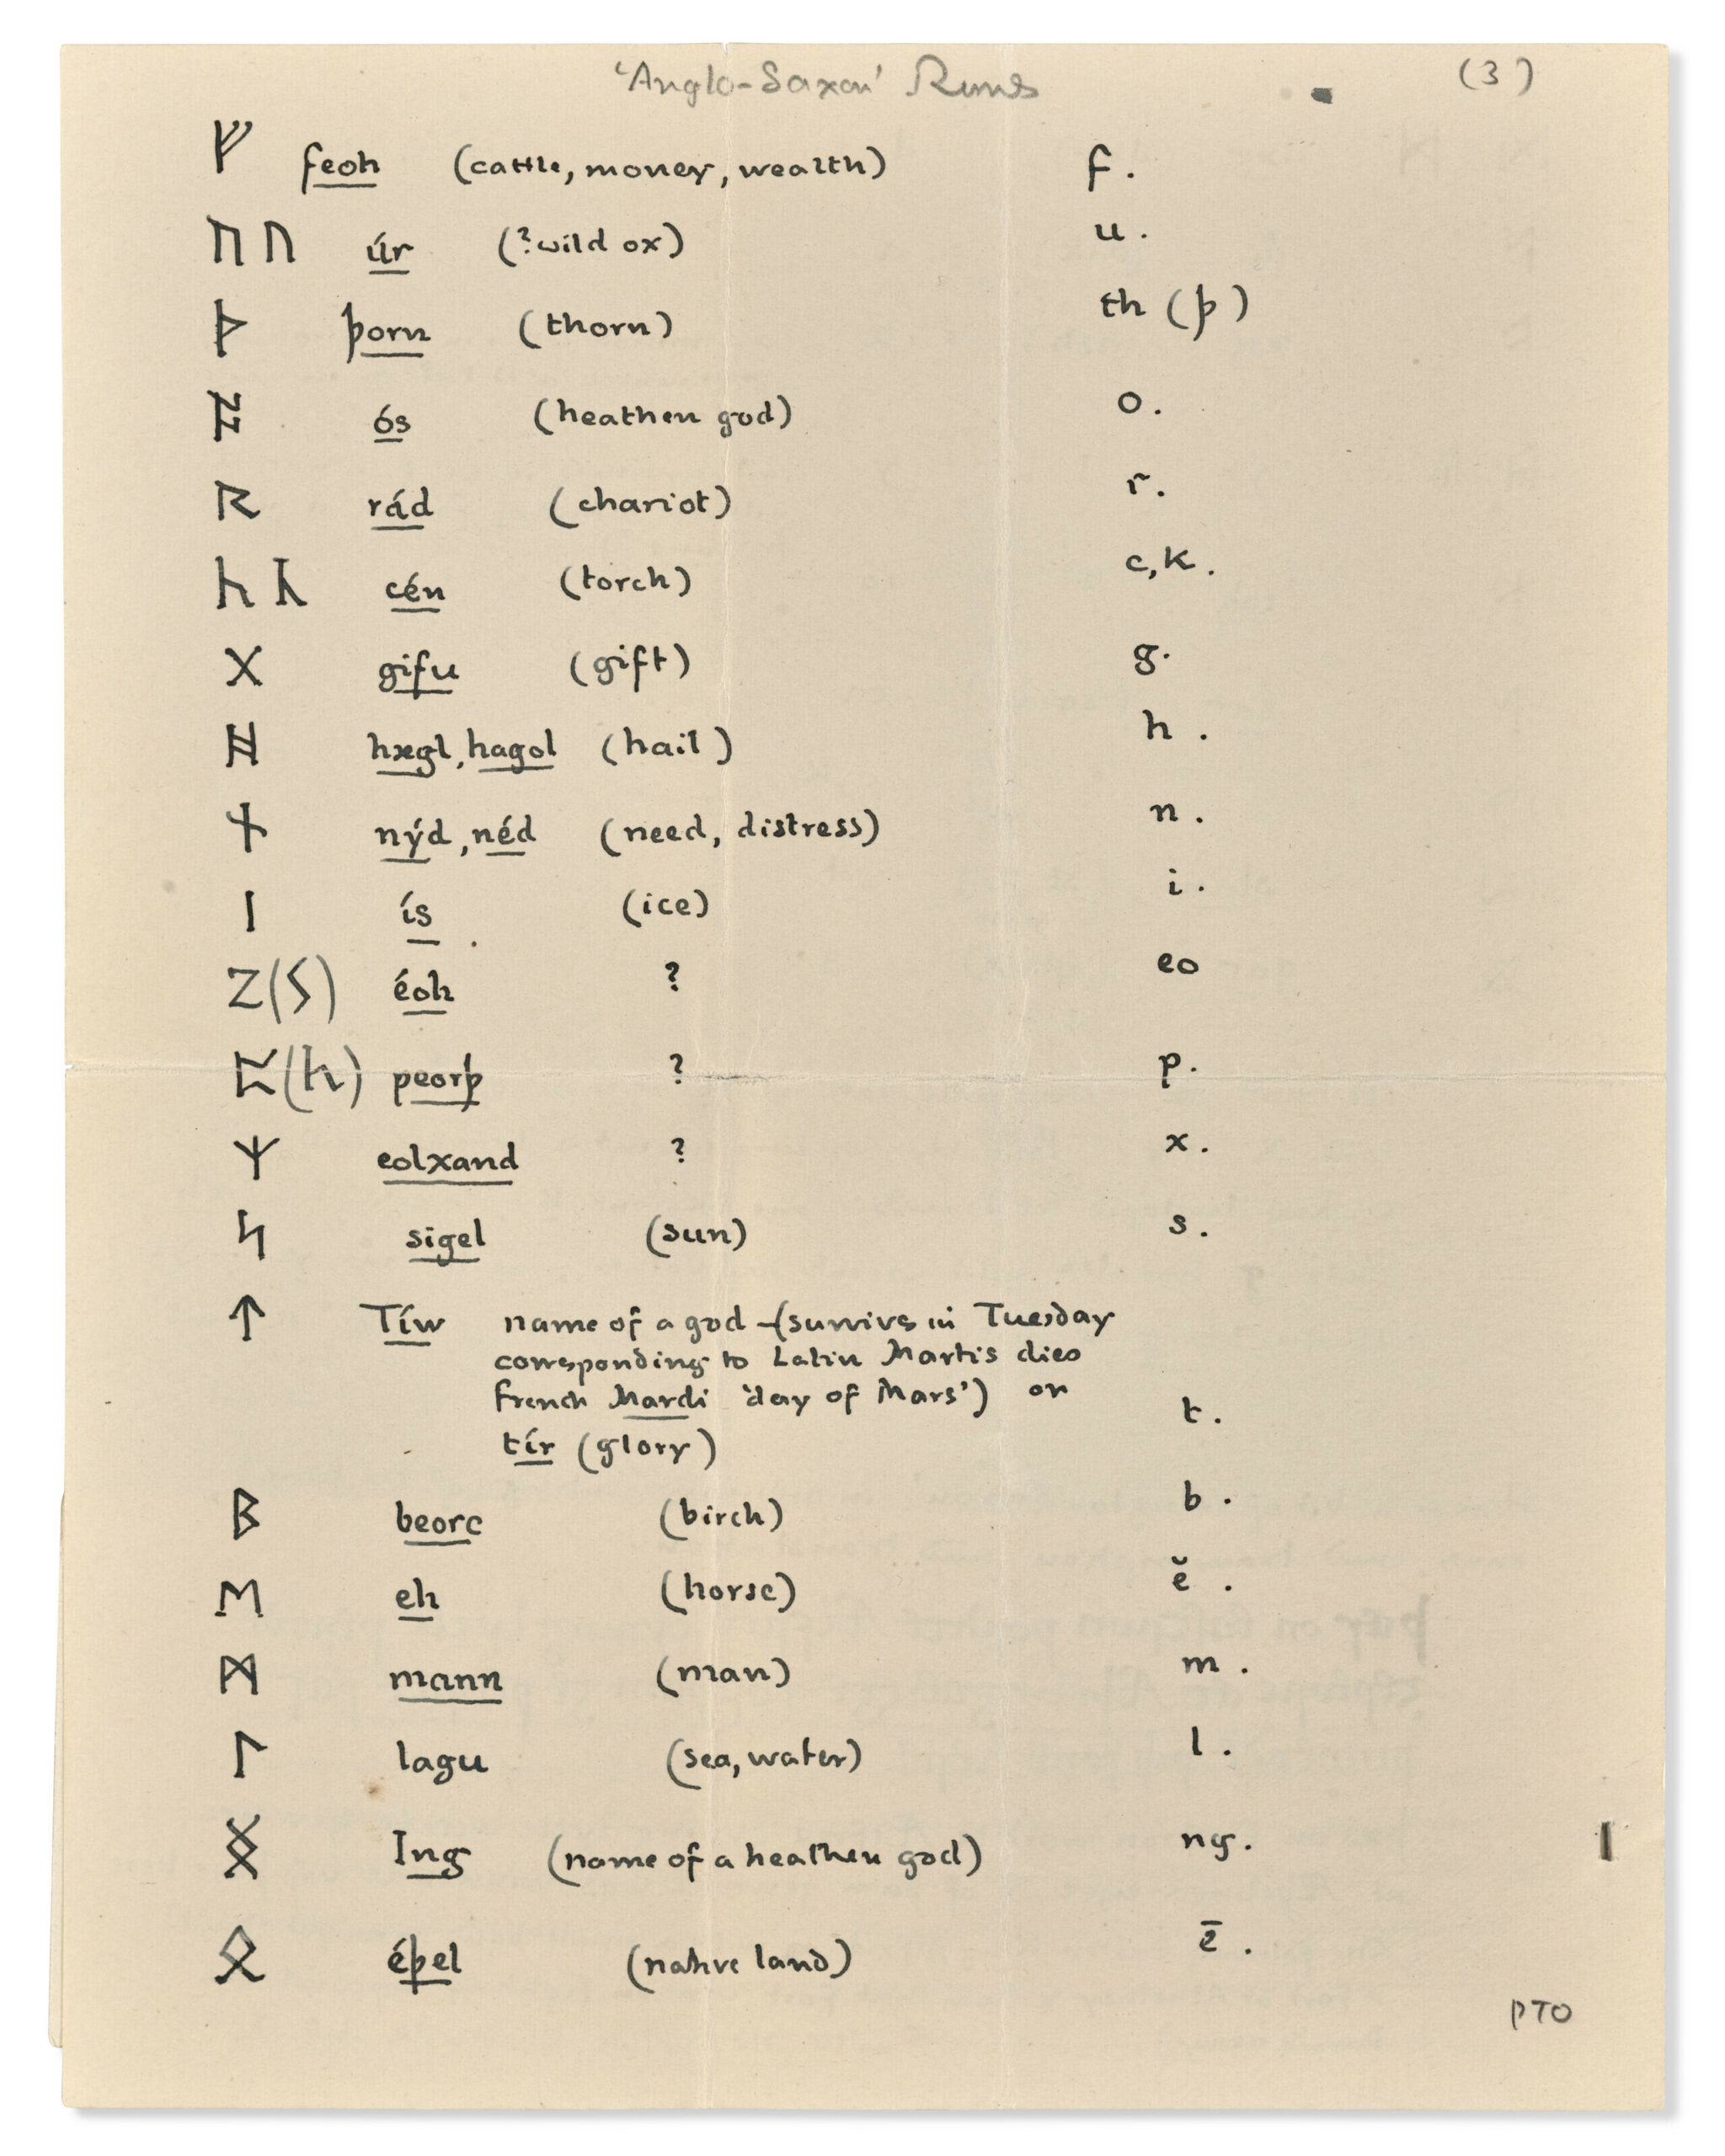 'Anglo-Saxon' Runes (3)
ᚠ feoh (cattle, money, wealth) f.
ᚢ ᚢ úr (?wild ox) u.
ᚦ þorn (thorn) th (þ)
ᚩ ós (heathen god) o.
ᚱ rád (chariot) r.
ᚳ ᛣ cén (torch) c, k.
ᚷ gifu (gift) g.
ᚻ hægl, hagol (hail) h.
ᚾ nýd, néd (need, distress) n.
ᛁ ís (ice) i.
Z(S) éoh ? eo
ᛈ(ᚳ) peorþ ? p.
ᛉ eolxand ? x.
ᛋ sigel (sun) s.
ᛏ Tíw name of a god (survives in Tuesday
corresponding to Latin Martis dies
French Mardi 'day of Mars') or
tír (glory) t.
ᛒ beorc (birch) b.
ᛖ eh (horse) ĕ.
ᛗ mann (man) m.
ᛚ lagu (sea, water) l.
ᛝ Ing (name of a heathen god) ng.
ᛟ éþel (native land) ē.
PTO